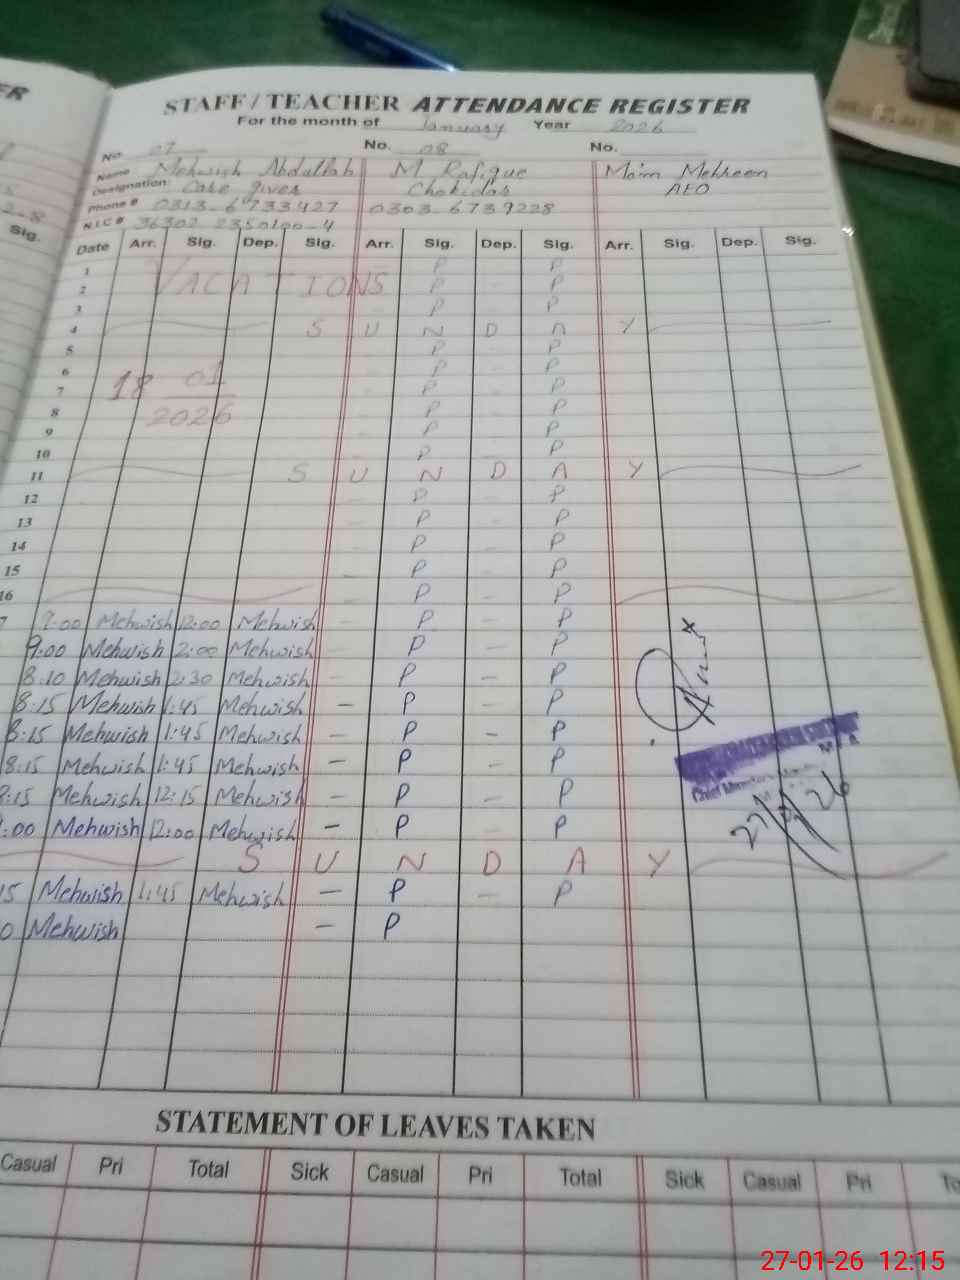 ER
STAFF / TEACHER ATTENDANCE REGISTER
For the month of January Year 2026
No. 07 No. 08 No.
Name Mehwish Abdullah M Rafique Mam Mehreen
Designation: Care giver Chokidar AEO
Phone # 0313-6733427 0303-6739228
N.I.C # 36302-2350100-4
Sig. Date Arr. Sig. Dep. Sig. Arr. Sig. Dep. Sig. Arr. Sig. Dep. Sig.
1 P P
2 VACATIONS P - P
3 P P
4 S U N D A Y
5 P P
6 P P
7 18 01 P P
8 2026 P P
9 P P
10 P P
11 S U N D A Y
12 P - P
13 - P - P
14 - P - P
15 - P - P
16 - P - P
7 9:00 Mehwish 12:00 Mehwish - P - P
9:00 Mehwish 2:00 Mehwish - P - P
8:10 Mehwish 2:30 Mehwish - P - P
8:15 Mehwish 1:45 Mehwish - P - P
8:15 Mehwish 1:45 Mehwish - P - P
8:15 Mehwish 1:45 Mehwish - P - P
8:15 Mehwish 12:15 Mehwish - P - P
:00 Mehwish 12:00 Mehwish - P - P
S U N D A Y
15 Mehwish 1:45 Mehwish - P - P
0 Mehwish - P
Chief Minister's
27/1/26
STATEMENT OF LEAVES TAKEN
Casual Pri Total Sick Casual Pri Total Sick Casual Pri To
27-01-26 12:15